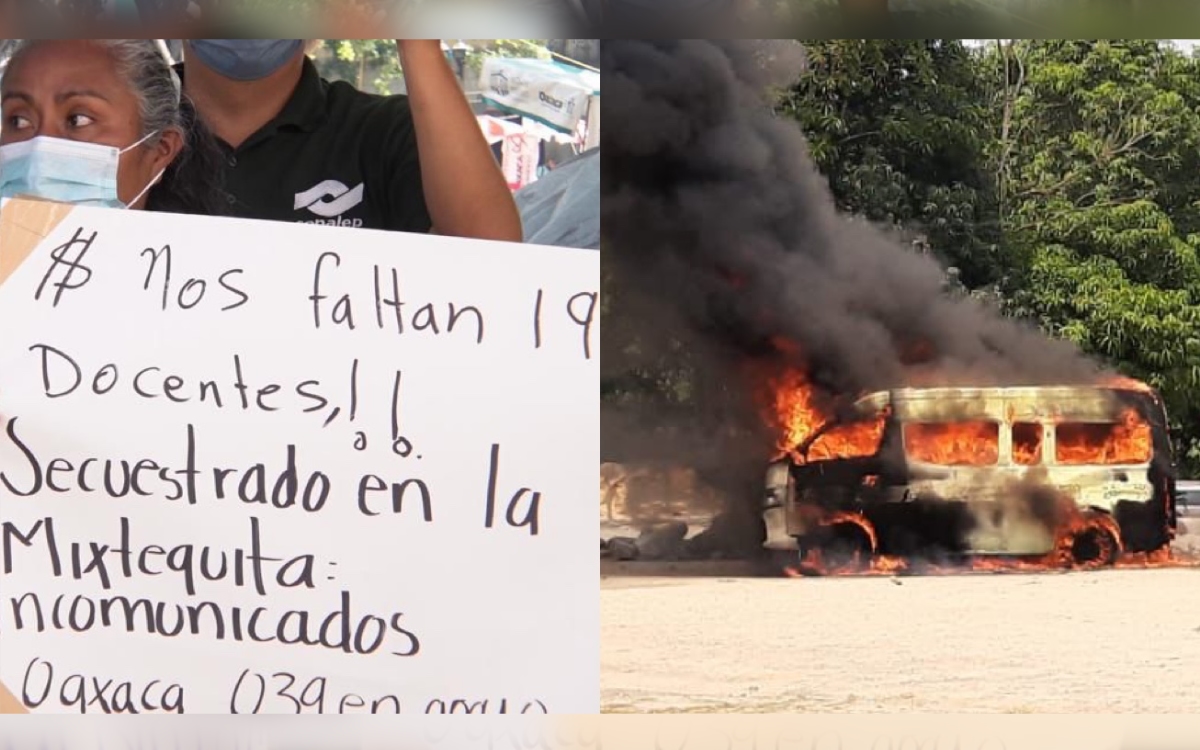 conalep
$ nos faltan 19
Docentes,!!
Secuestrado en la
Mixtequita:
ncomunicados
Oaxaca 039 en